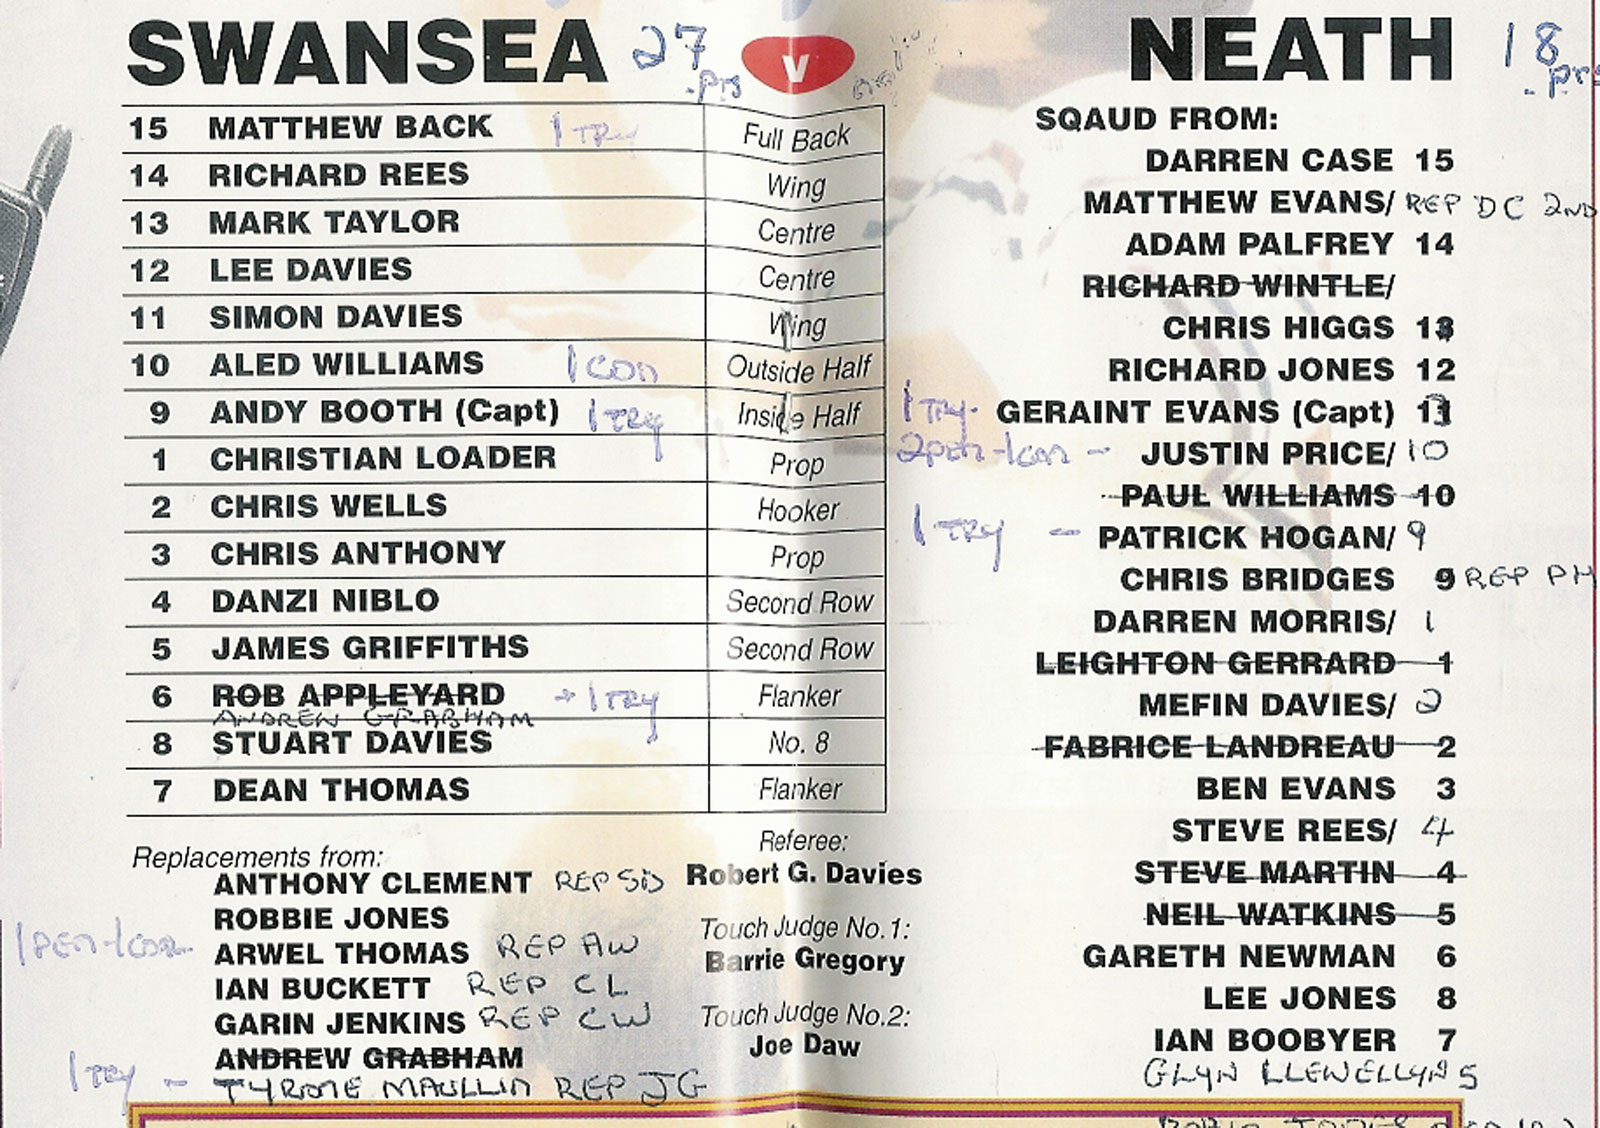 SWANSEA 27 pts v NEATH 18 pts
15 MATTHEW BACK 1 TRY Full Back
14 RICHARD REES Wing
13 MARK TAYLOR Centre
12 LEE DAVIES Centre
11 SIMON DAVIES Wing
10 ALED WILLIAMS 1 CON Outside Half
9 ANDY BOOTH (Capt) 1 TRY Inside Half
1 CHRISTIAN LOADER Prop
2 CHRIS WELLS Hooker
3 CHRIS ANTHONY Prop
4 DANZI NIBLO Second Row
5 JAMES GRIFFITHS Second Row
6 ROB APPLEYARD → 1 TRY Flanker
ANDREW GRABHAM
8 STUART DAVIES No. 8
7 DEAN THOMAS Flanker
Replacements from:
ANTHONY CLEMENT REP SD
ROBBIE JONES
1 PEN-1 CON ARWEL THOMAS REP AW
IAN BUCKETT REP CL
GARIN JENKINS REP CW
ANDREW GRABHAM
1 TRY - TYRONE MAULLIN REP JG
Referee:
Robert G. Davies
Touch Judge No.1:
Barrie Gregory
Touch Judge No.2:
Joe Daw
SQAUD FROM:
DARREN CASE 15
MATTHEW EVANS/ REP DC 2ND
ADAM PALFREY 14
RICHARD WINTLE/
CHRIS HIGGS
RICHARD JONES 12
1 TRY. GERAINT EVANS (Capt)
2 pen-1 con - JUSTIN PRICE/ 10
PAUL WILLIAMS 10
1 TRY - PATRICK HOGAN/ 9
CHRIS BRIDGES 9 REP PH
DARREN MORRIS/ 1
LEIGHTON GERRARD 1
MEFIN DAVIES/ 2
FABRICE LANDREAU 2
BEN EVANS 3
STEVE REES/ 4
STEVE MARTIN 4
NEIL WATKINS 5
GARETH NEWMAN 6
LEE JONES 8
IAN BOOBYER 7
GLYN LLEWELLYN 5